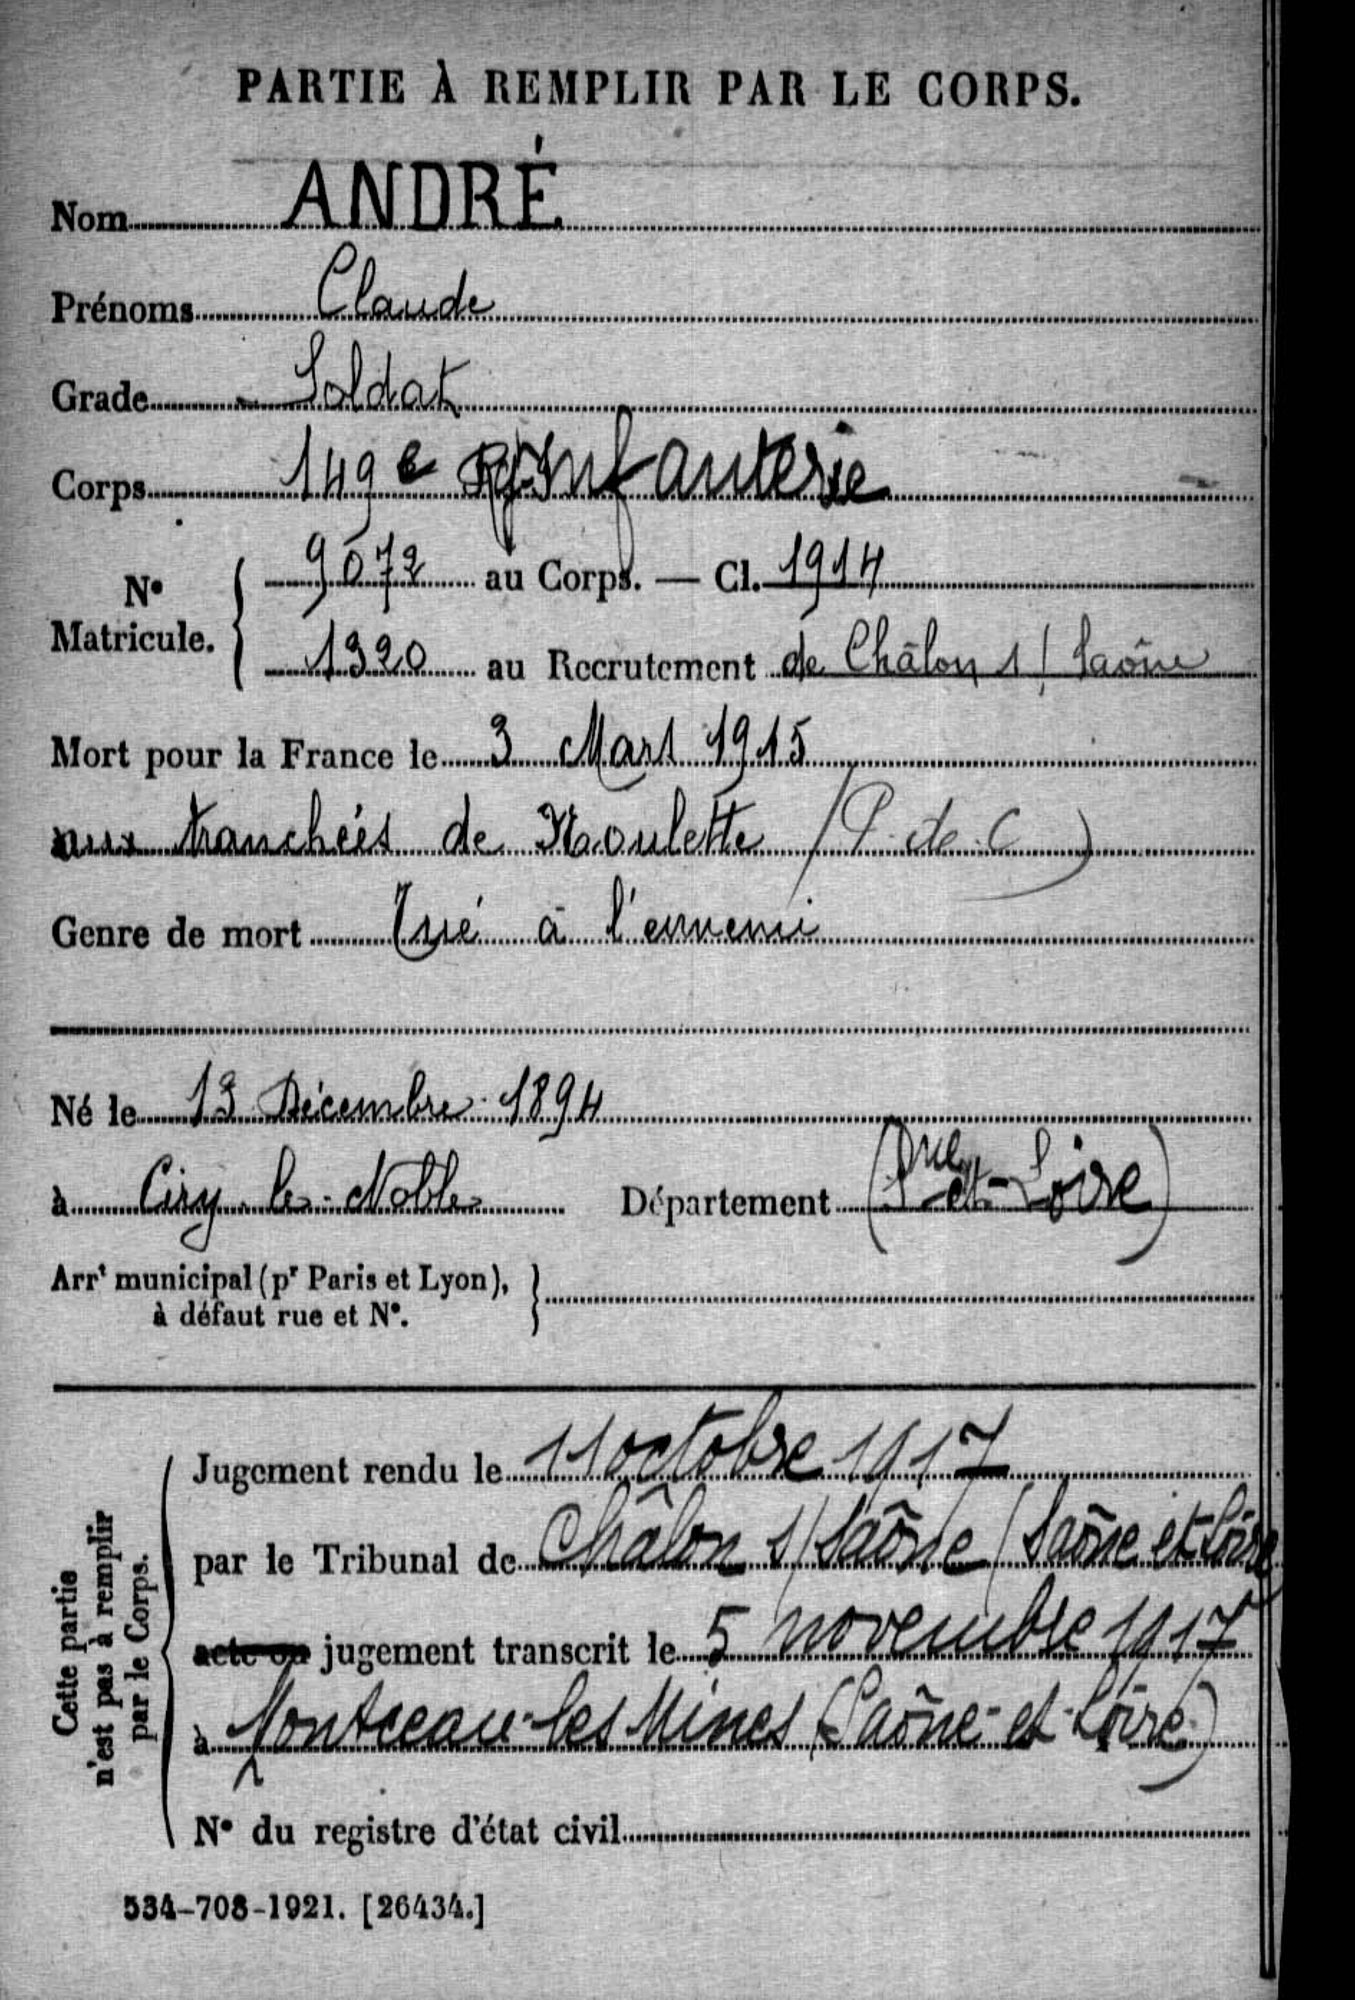 PARTIE À REMPLIR PAR LE CORPS.
Nom ANDRÉ
Prénoms Claude
Grade Soldat
Corps 149e Rgt Infanterie
N° Matricule. { 9072 au Corps. — Cl. 1914
1320 au Recrutement de Châlon s/ Saône
Mort pour la France le 3 Mars 1915
aux tranchées de Noulette (P. de C)
Genre de mort Tué à l'ennemi
Né le 13 Décembre 1894
à Ciry-le-Noble Département (Sne et-Loire)
Arrt municipal (pr Paris et Lyon), }
à défaut rue et N°.
Cette partie
n'est pas à remplir
par le Corps.
Jugement rendu le 11 octobre 1917
par le Tribunal de Châlon s/ Saône (Saône et Loire
acte ou jugement transcrit le 5 novembre 1917
à Montceau-les Mines (Saône-et-Loire)
N° du registre d'état civil
534-708-1921. [26434.]